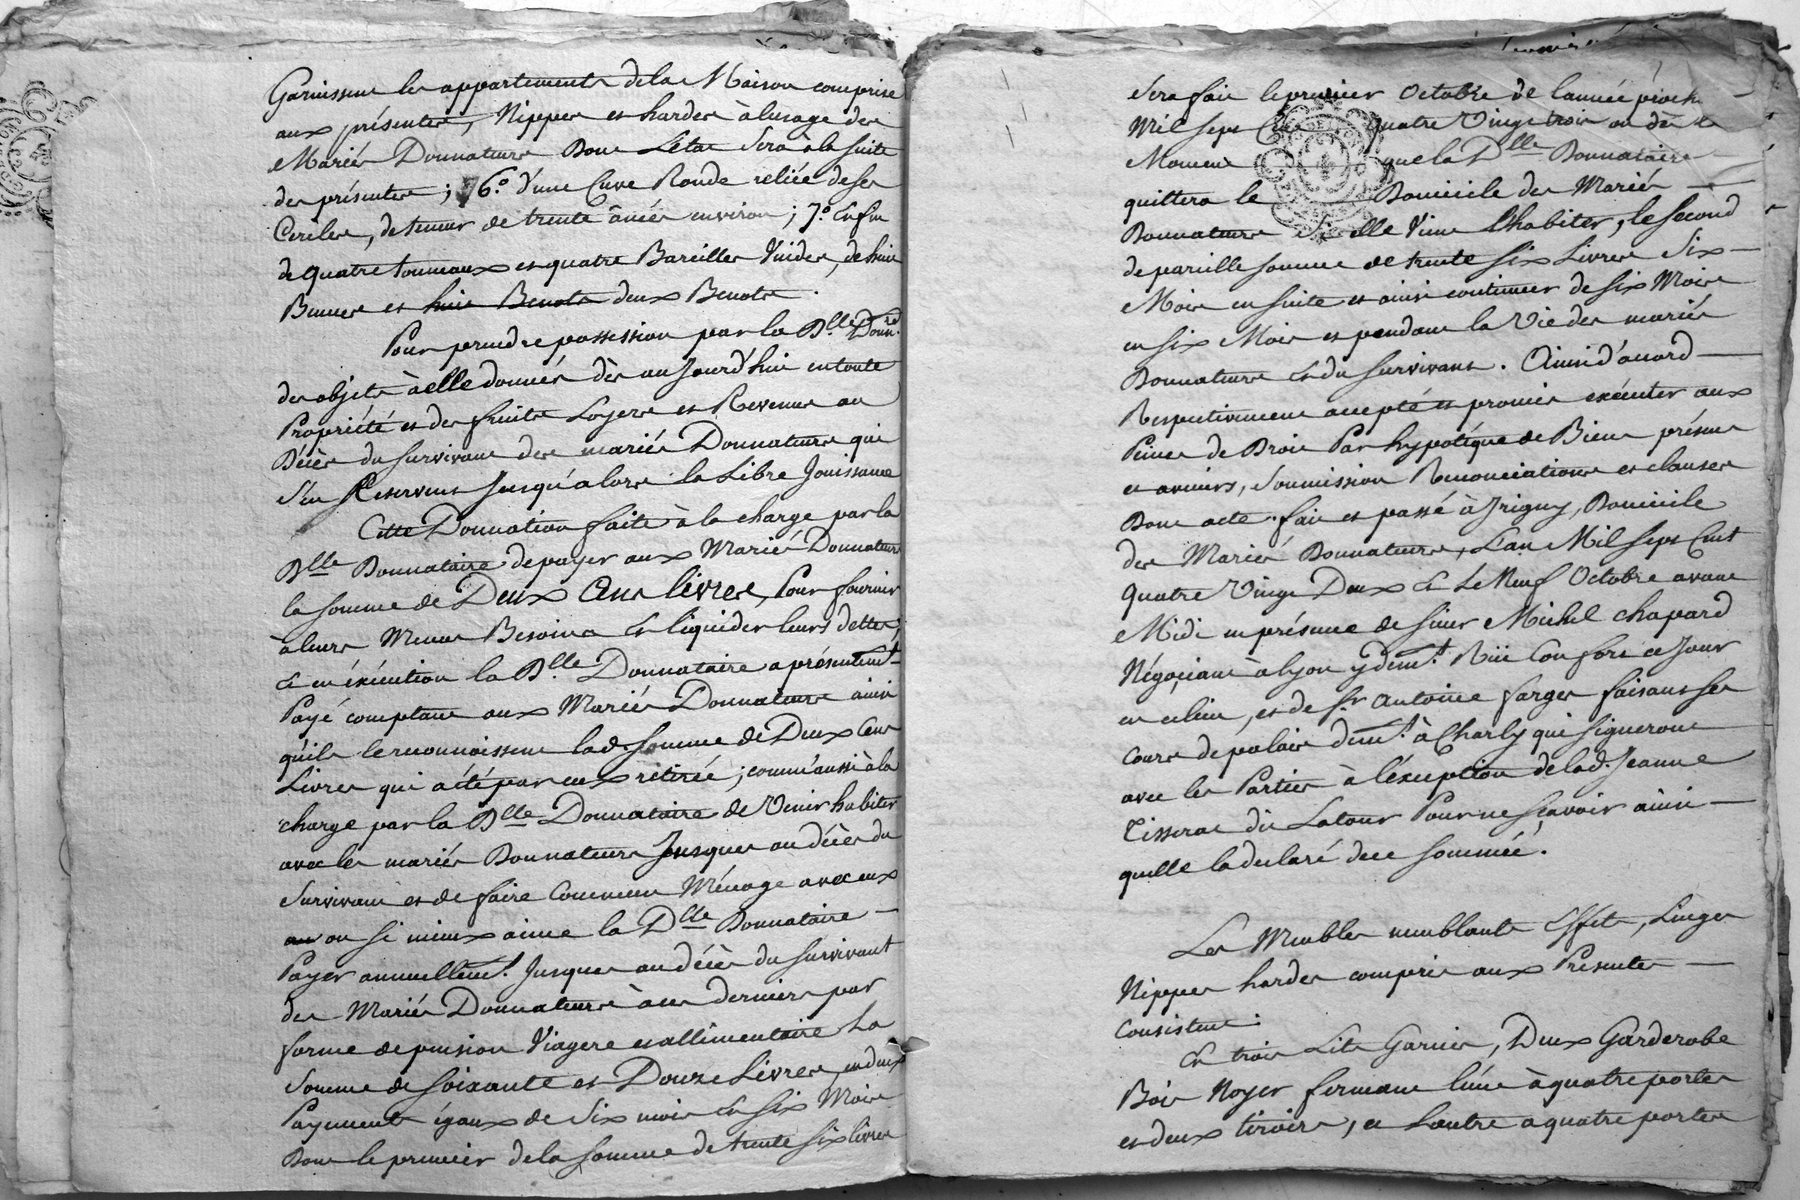 Garnissent les appartements de la Maison comprise
aux présentes, Nippes et hardes à lusage des
Mariés Donnateurs Dont L'état Sera à la suite
des présentes ; 6.° d'une Cuve Ronde reliée de ses
Cercles, de teneur de trente ânées environ ; 7.° Enfin
de quatre tonneaux et quatre Bareilles Vuides, de huit
Bennes et huit Benots deux Benots.
Pour prendre possession par la Dlle Donn.re
des objets à elle donnés dès aujourd'hui en toute
Propriété et des fruits Loyers et Revenus au
Décès du survivant des mariés Donnateurs qui
s'en Reservent Jusqu'alors la Libre Jouissance
Cette Donnation faite à la charge par la
Dlle Donnataire de payer aux Mariés Donnateurs
la somme de Deux Cens livres, Pour fournir
à leurs Menus Besoins Et liquider leurs dettes,
Et en éxécution la Dlle Donnataire a présentemt
Payé comptant aux Mariés Donnateurs ainsi
qu'ils le reconnoissent lad. somme de Deux Cens
Livres qui a été par eux retirée ; comm'aussi à la
charge par la Dlle Donnataire de Venir habiter
avec les mariés Donnateurs Jusques au décès du
Survivant et de faire Commun Ménage avec eux
ou si mieux aime la Dlle Donnataire
Payer annuellemt. Jusques au décès du survivant
des Mariés Donnateurs à ces derniers par
forme de pension Viagere et allimentaire La
Somme de soixante et Douze Livres, en deux
Payements égaux de Six mois En Six Mois
Dont le premier de la somme de trente six livres
Sera fait le premier Octobre de l'année proch
Mil sept Cent Quatre Vingt trois ou dès le
Moment que la Dlle Donnataire
quittera le Domicile des Mariés
Donnateurs Si elle Vient L'habiter, le Second
de pareille somme de trente six Livres Six
Mois en suite et ainsi continuer de six Mois
en six Mois et pendant la Vie des mariés
Donnateurs Et du survivant. Ainsi d'accord
Respectivement accepté et promis exécuter aux
Peines de Droit Par hypotéque de Biens présens
et avenirs, soumission Renonciations et clauses
Dont acte. fait et passé à Irigny, Domicile
des Mariés Donnateurs, L'an Mil sept Cent
Quatre Vingt Deux Et Le Neuf Octobre avant
Midi en présence de sieur Michel Chapard
Négociant à Lyon y demt. Rüe Confort ce Jour
en ce lieu, et de Sr Antoine farges faisant ses
Cours de palais demt. à Charly qui signeront
avec les Parties à l'éxception de lad. Jeanne
Tisserac dit Latour Pour ne sçavoir ainsi
quelle la declaré de ce sommée.
Les Meubles meublants Effets, Linges
Nippes hardes compris aux Présentes
Consistent.
En trois Lits Garnis, Deux Garderobe
Bois Noyer fermant l'une à quatre portes
et deux tiroirs, et L'autre a quatre portes